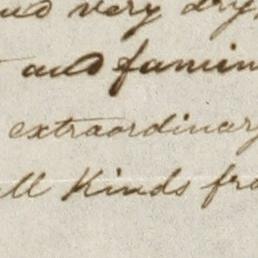 and very dry,
and famin
extraordinary
all Kinds fro